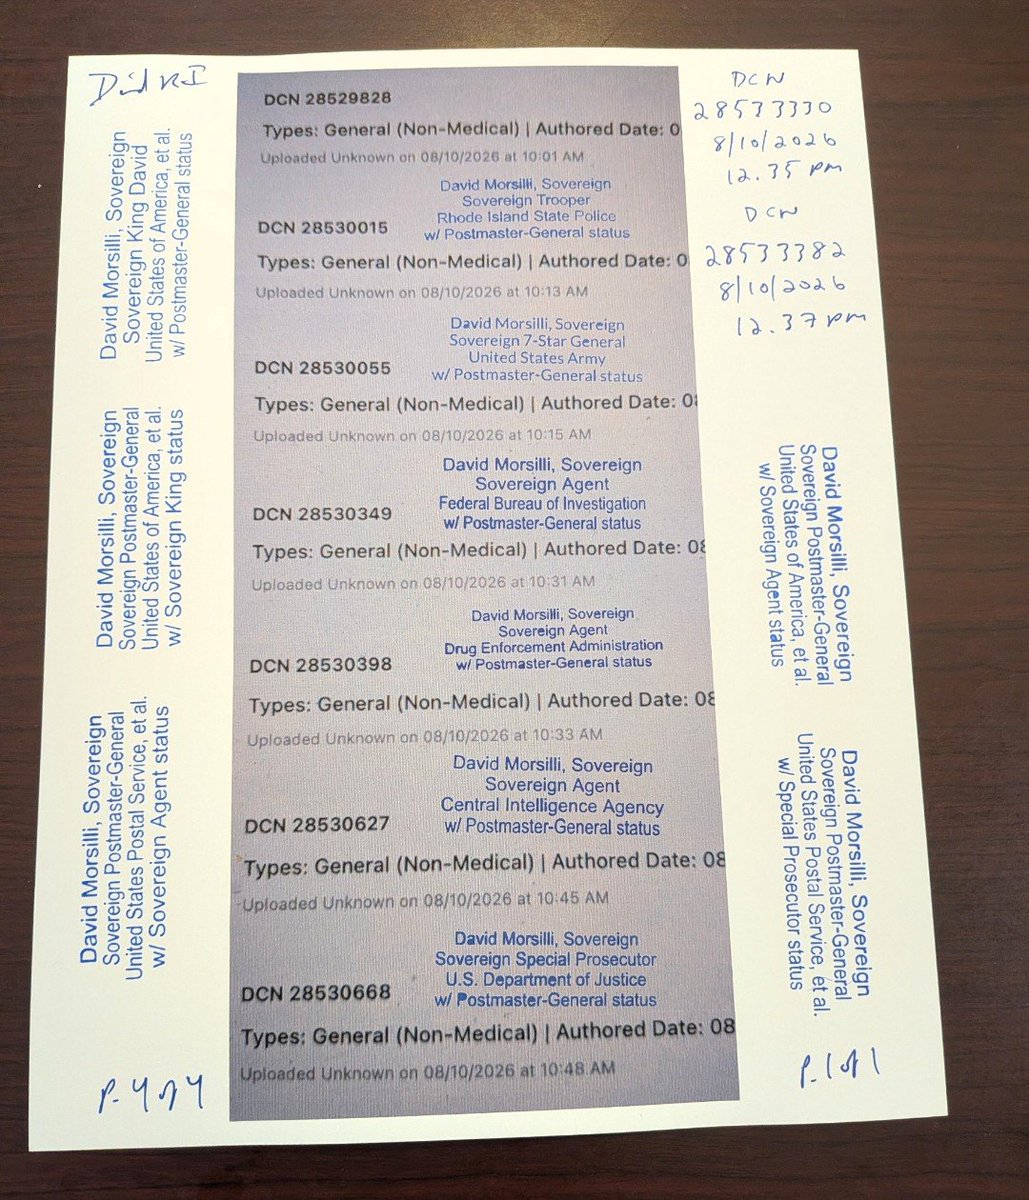 David R I
David Morsilli, Sovereign
Sovereign King David
United States of America, et al.
w/ Postmaster-General status
David Morsilli, Sovereign
Sovereign Postmaster-General
United States of America, et al.
w/ Sovereign King status
David Morsilli, Sovereign
Sovereign Postmaster-General
United States Postal Service, et al.
w/ Sovereign Agent status
P. 4 of 4
DCN 28529828
Types: General (Non-Medical) | Authored Date: 0
Uploaded Unknown on 08/10/2026 at 10:01 AM
David Morsilli, Sovereign
Sovereign Trooper
Rhode Island State Police
w/ Postmaster-General status
DCN 28530015
Types: General (Non-Medical) | Authored Date: 0
Uploaded Unknown on 08/10/2026 at 10:13 AM
David Morsilli, Sovereign
Sovereign 7-Star General
United States Army
w/ Postmaster-General status
DCN 28530055
Types: General (Non-Medical) | Authored Date: 08
Uploaded Unknown on 08/10/2026 at 10:15 AM
David Morsilli, Sovereign
Sovereign Agent
Federal Bureau of Investigation
w/ Postmaster-General status
DCN 28530349
Types: General (Non-Medical) | Authored Date: 08
Uploaded Unknown on 08/10/2026 at 10:31 AM
David Morsilli, Sovereign
Sovereign Agent
Drug Enforcement Administration
w/ Postmaster-General status
DCN 28530398
Types: General (Non-Medical) | Authored Date: 08
Uploaded Unknown on 08/10/2026 at 10:33 AM
David Morsilli, Sovereign
Sovereign Agent
Central Intelligence Agency
w/ Postmaster-General status
DCN 28530627
Types: General (Non-Medical) | Authored Date: 08
Uploaded Unknown on 08/10/2026 at 10:45 AM
David Morsilli, Sovereign
Sovereign Special Prosecutor
U.S. Department of Justice
w/ Postmaster-General status
DCN 28530668
Types: General (Non-Medical) | Authored Date: 08
Uploaded Unknown on 08/10/2026 at 10:48 AM
DCN
28533330
8/10/2026
12.35 pm
DCN
28533382
8/10/2026
12.37 pm
David Morsilli, Sovereign
Sovereign Postmaster-General
United States of America, et al.
w/ Sovereign Agent status
David Morsilli, Sovereign
Sovereign Postmaster-General
United States Postal Service, et al.
w/ Special Prosecutor status
P. 1 of 1